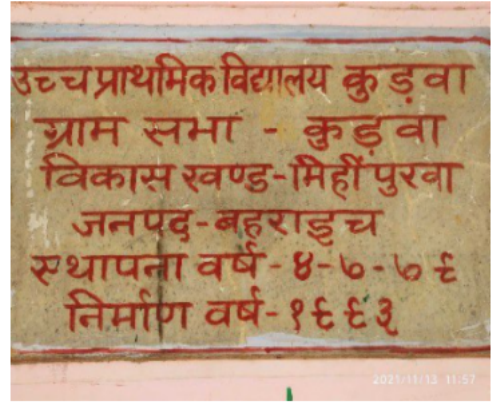 उच्च प्राथमिक विद्यालय कुड़वा
ग्राम सभा - कुड़वा
विकास खण्ड-मिहींपुरवा
जनपद-बहराइच
स्थापना वर्ष-४-७-७९
निर्माण वर्ष-१९९३
2021/11/13 11:57